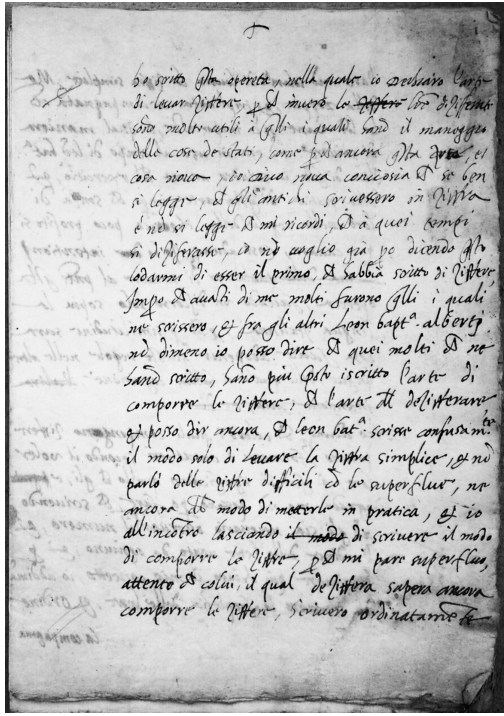 ho scritto q̃sta opereta, nella quale io dechiaro l'arte
di levar Ziffere, p̱ che invero le Ziffere
sono molto utili à q̃lli i quali hanno il maneggio
delle cose de stati, come ancora q̃sta
cosa nova conciosia che se ben
si legge, che gli antichi scrivessero in Ziffra
e nõ si legge che mi ricordi, che à quei tempi
si diziferasse, io nõ voglio già dicendo q̃sto
lodarmi di esser il primo, che habbia scritto di Ziffere
che avãti di me molti furono q̃lli i quali
ne scrissero, et fra gli altri Leon bapt.ª alberti
nõ dimeno io posso dire che quei molti che ne
hanno scritto, hano più iscritto l'arte di
comporre le Ziffere, che l'arte del deZifferare
et posso dir ancora, che leon bat.ª scrisse confusam.te
il modo solo di levare la Ziffra simplice, et nõ
parlò delle Ziffre difficili cõ le superflue, ne
ancora del modo di metterle in pratica, et io
all'incõtro lasciando il modo di scrivere il modo
di comporre le Ziffre, p̱ che mi pare superfluo,
attento che colui, il qual deZiffera saperà ancora
comporre le Ziffere, scriverò ordinatamẽte